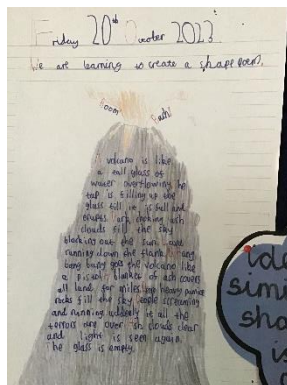 Friday 20th October 2023
We are learning to create a shape poem.
Boom
A volcano is like
a tall glass of
water overflowing he
tap is filling up the
glass till is is full and
erupts. ark choking ash
clouds fill the sky
blocking out the sun. and
running down the flank bang
bang bang goes the volcano like
a pistol blanket of ash covers
all land for miles. heavy pumice
rocks fill the sky eople screaming
and running wdderly is all the
terrors are over sh clouds clear
and light is seen again.
he glass is empty.
simi
sha
is